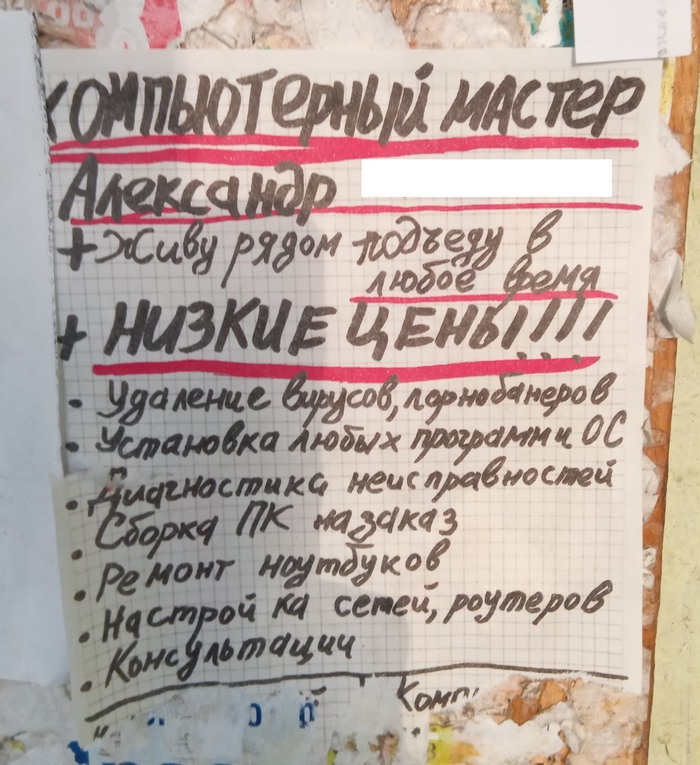 КОМПЬЮТЕРНЫЙ МАСТЕР
Александр
+ Живу рядом подъеду в
любое время
+ НИЗКИЕ ЦЕНЫ!!!
• Удаление вирусов, порнобанеров
• Установка любых программ и ОС
• Диагностика неисправностей
• Сборка ПК на заказ
• Ремонт ноутбуков
• Настройка сетей, роутеров
• Консультации